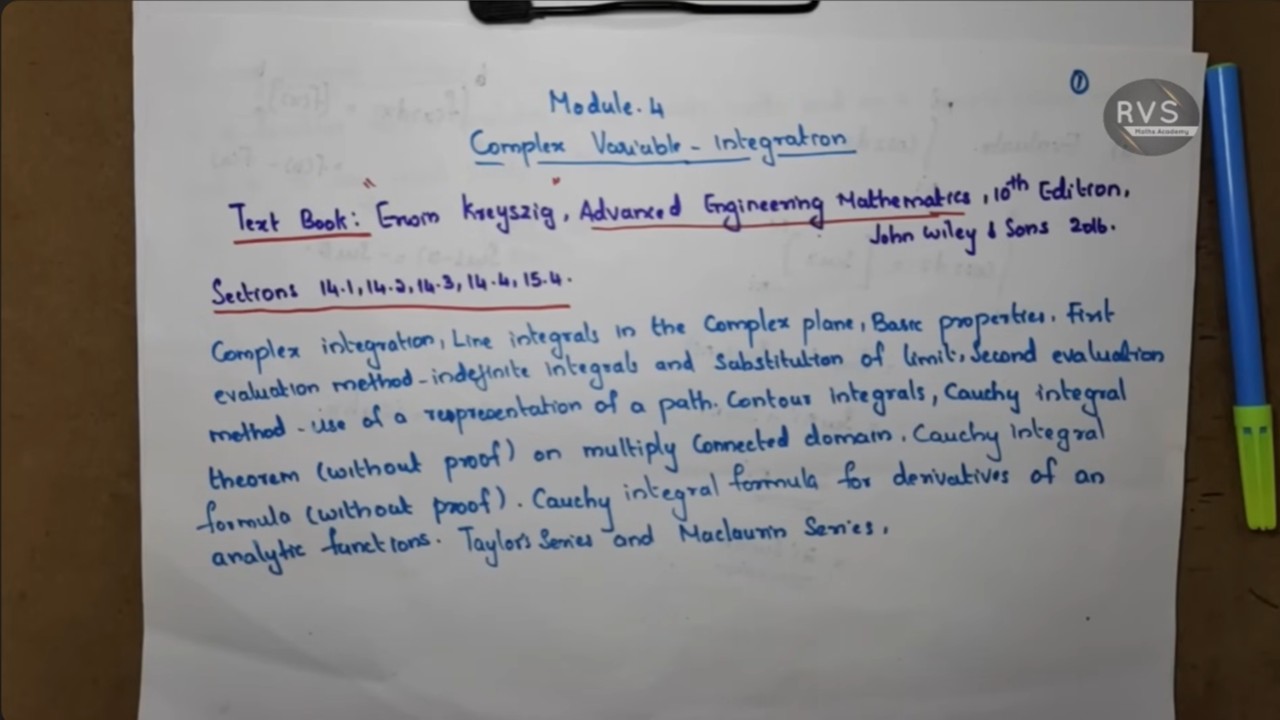 ①
RVS
Maths Academy
Module.4
Complex Variable - Integration
Text Book: Erwin Kreyszig, Advanced Engineering Mathematics, 10th Edition,
John Wiley & Sons 2016.
Sections 14.1, 14.2, 14.3, 14.4, 15.4.
Complex integration, Line integrals in the Complex plane, Basic properties. First
evaluation method - indefinite integrals and substitution of limit. Second evaluation
method - use of a respresentation of a path. Contour integrals, Cauchy integral
theorem (without proof) on multiply Connected domain. Cauchy integral
formula (without proof). Cauchy integral formula for derivatives of an
analytic functions. Taylor's Series and Maclaurin Series.